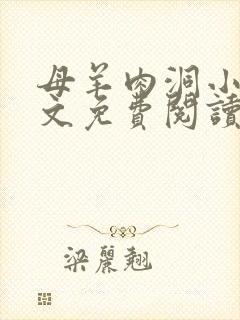 母羊肉洞小
文免費閱讀
梁麗翹